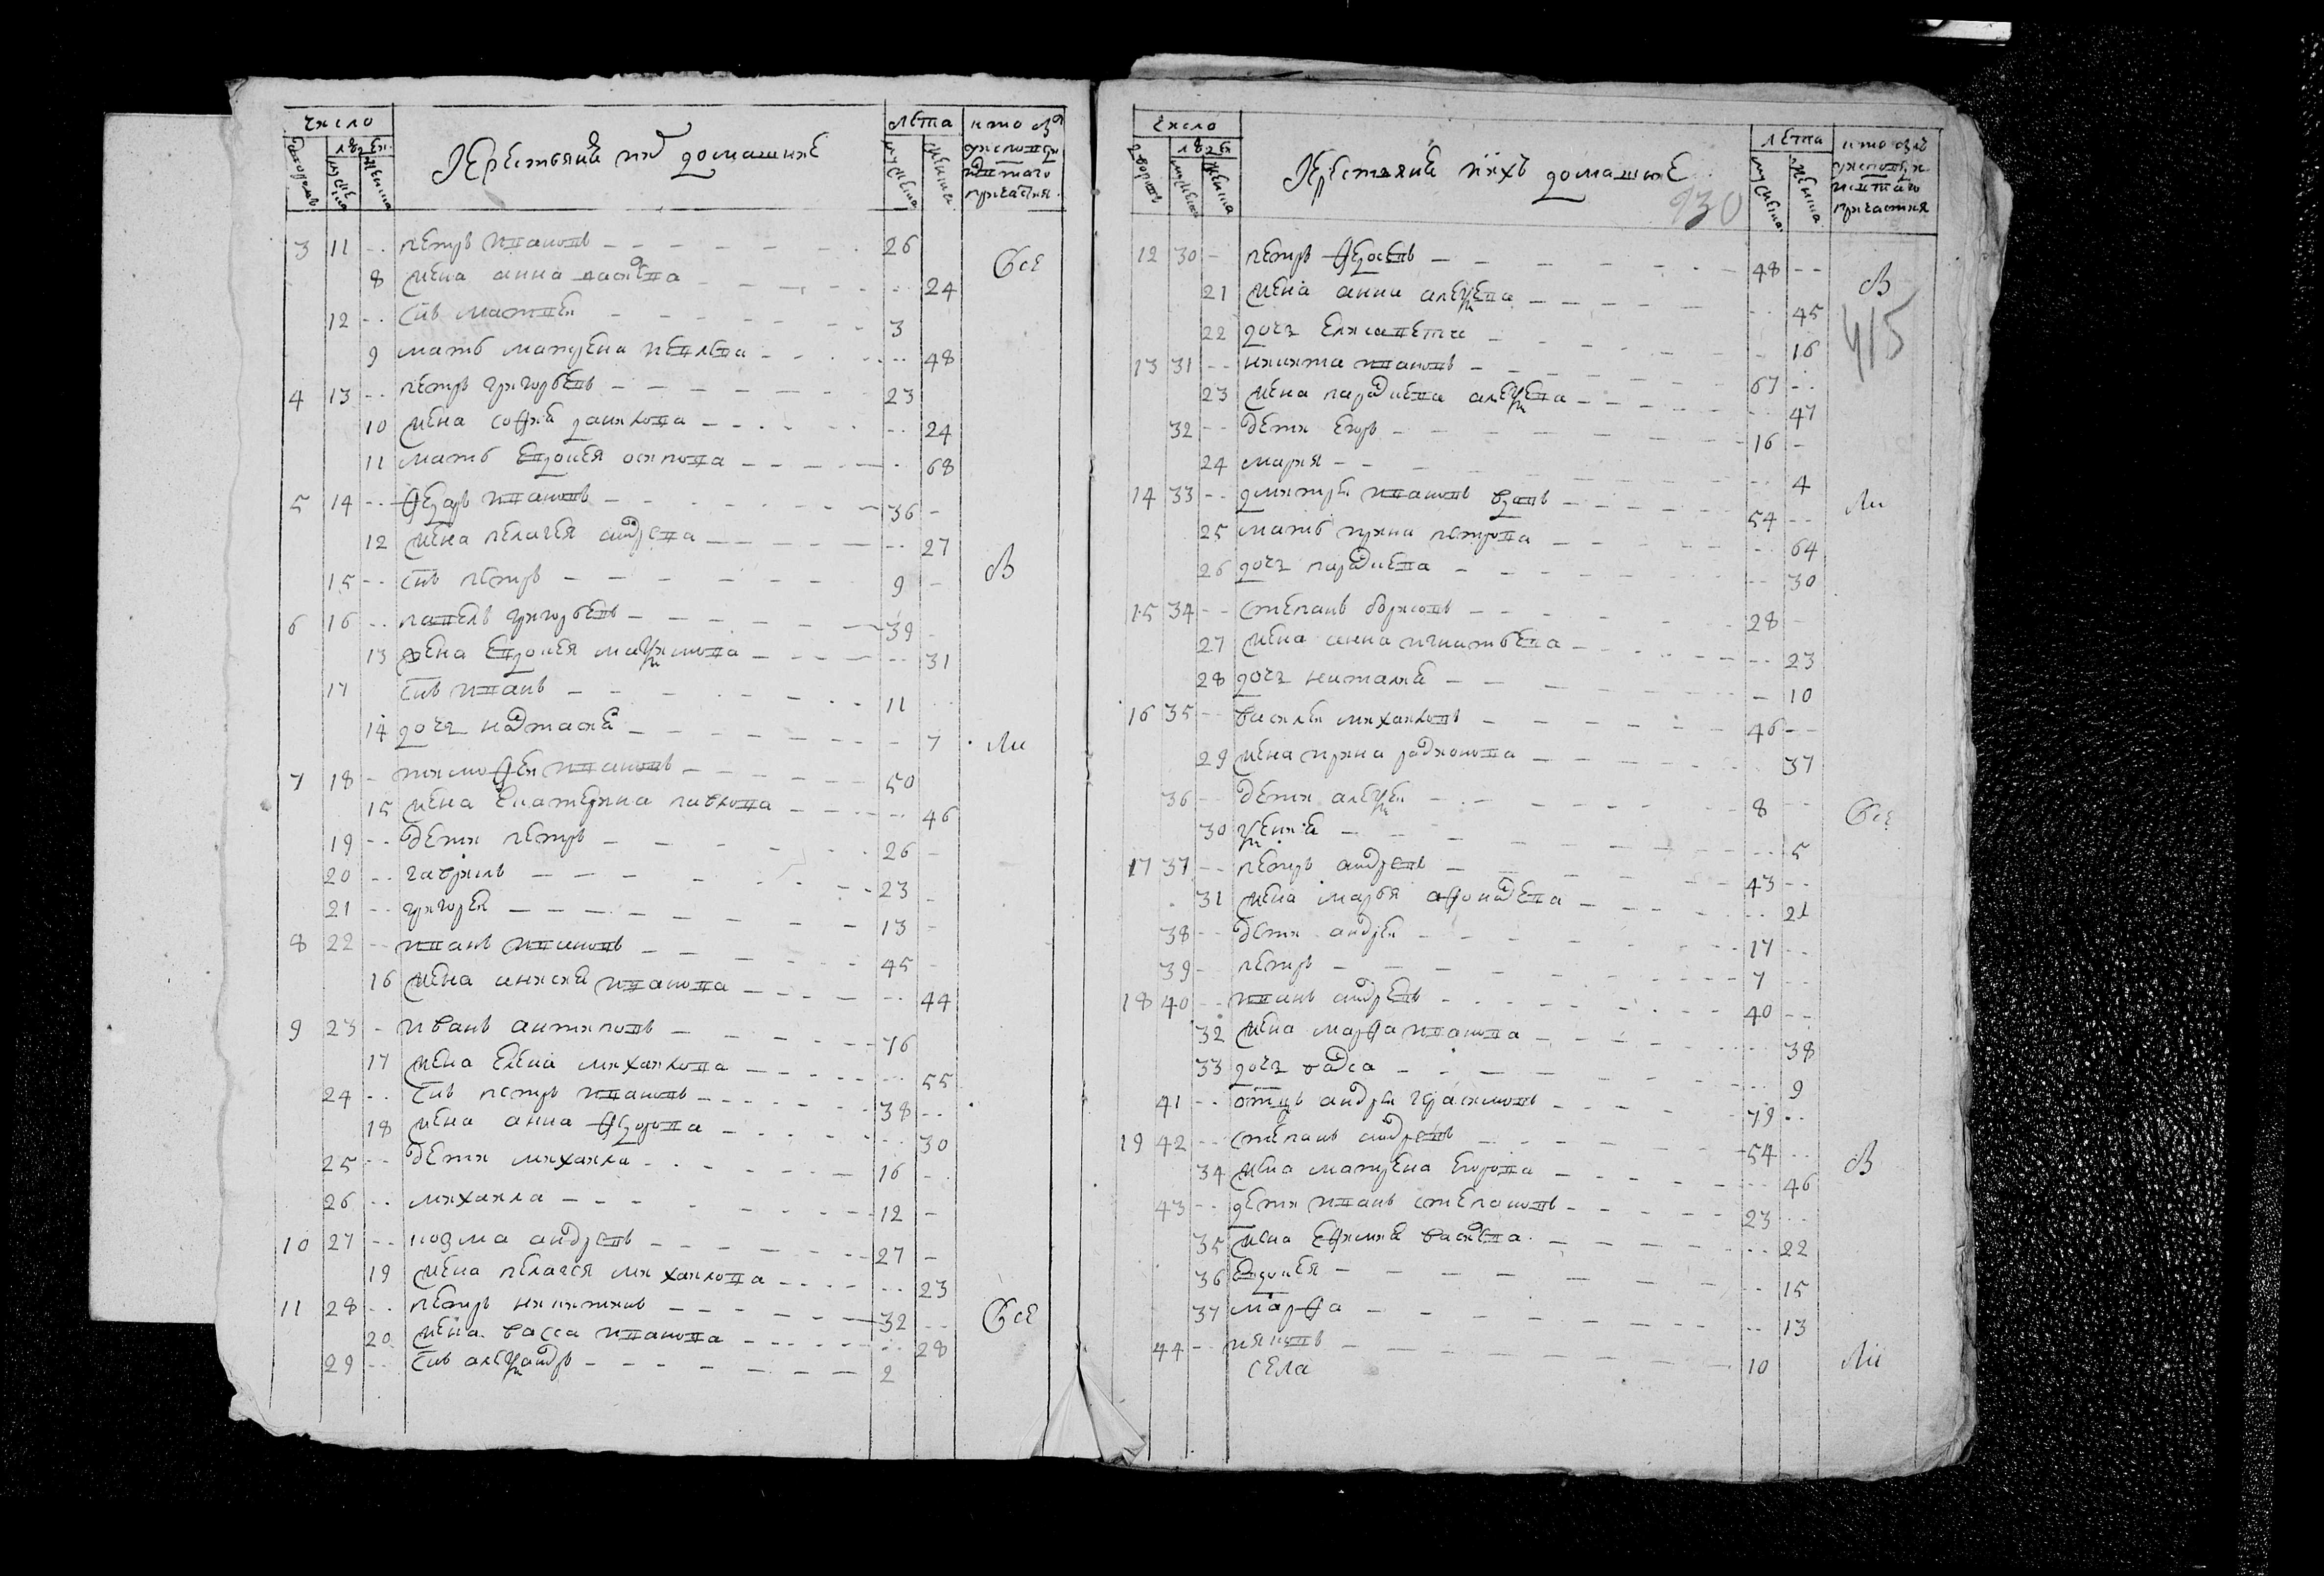 число
людей
дворовъ
мужеска
женска
Крестьяне их домашние
лета
мужеска
женска
кто былъ у исповеди и святаго причастия
3 11 -- петръ ивановъ 26
8 жена анна васильева 24 Все
12 -- снъ матвей 3
9 мать матрена иевлева 48
4 13 -- петръ григорьевъ 23
10 жена софия данилова 24
11 мать евдокея осипова 68
5 14 -- федоръ ивановъ 36
12 жена пелагея андреева 27
15 -- снъ петръ 9 В
6 16 -- павелъ григорьевъ 39
13 жена евдокея маѯимова 31
17 снъ иванъ 11
14 дочь наstasия 7 Ли
7 18 - тимофей ивановъ 50
15 жена екатерина павлова 46
19 -- дети петръ 26
20 -- гаврилъ 23
21 -- григорей 13
8 22 -- иванъ ивановъ 45
16 жена анисия иванова 44
9 23 - иванъ антиповъ 76
17 жена елена михаилова 55
24 -- снъ петръ ивановъ 38
18 жена анна федорова 30
25 -- дети михаила 16
26 -- михаила 12
10 27 -- козма андреевъ 27
19 жена пелагея михаилова 23
11 28 -- петръ никитинъ 32 Все
20 жена васса иванова 28
29 -- снъ алеѯандръ 2
число
людей
дворовъ
мужеска
женска
Крестьяне ихъ домашние
930
лета
мужеска
женска
кто былъ у исповеди и святаго причастия
12 30 - петръ 48 В
21 жена анна алеѯеева 45
22 дочь елисавета 16 415
13 31 -- никита ивановъ 67
23 жена парасковея алеѯеева 47
32 -- дети егоръ 16
24 мария 4
14 33 -- дмитрей ивановъ вдовъ 54 Ли
25 мать ирина петрова 64
26 дочь парасковея 30
15 34 -- степанъ борисовъ 28
27 жена анна игнатьева 23
28 дочь наталия 10
16 35 -- василей михаиловъ 46
29 жена ирина родионова 37
36 -- дети алеѯей 8 Все
30 ѯения 5
17 37 -- петръ андреевъ 43
31 жена марья 21
38 -- дети андрей 17
39 - петръ 7
18 40 -- иванъ андреевъ 40
32 жена марфа иванова 38
33 дочь васса 9
41 -- отецъ андрей герасимовъ 79
19 42 -- степанъ андреевъ 54 В
34 жена матрена егорова 46
43 -- дети иванъ степановъ 23
35 жена ефимия васильева 22
36 евдокея 15
37 марфа 13
44 -- яковъ 10 Ли
села